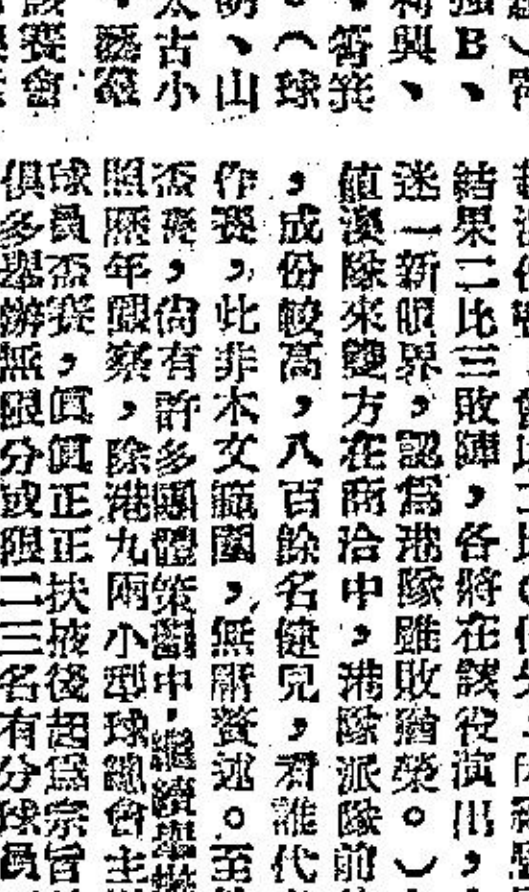 B、
利興、
（球
、山
太古小
賽會
結果二比三敗陣，各將在該役演出，
迷一新眼界，認為港隊雖敗猶榮。）
值澳隊來雙方在商洽中，港隊派隊前
，成份較高，八百餘名健兒，看誰代
作賽，此非本文範圍，無需贅述。至
盃賽，尚有許多團體策劃中，繼續舉辦
照歷年觀察，除港九兩小型球總會主
球員盃賽，眞眞正正扶掖後起爲宗旨
俱多舉辦無限分或限二三名有分球員